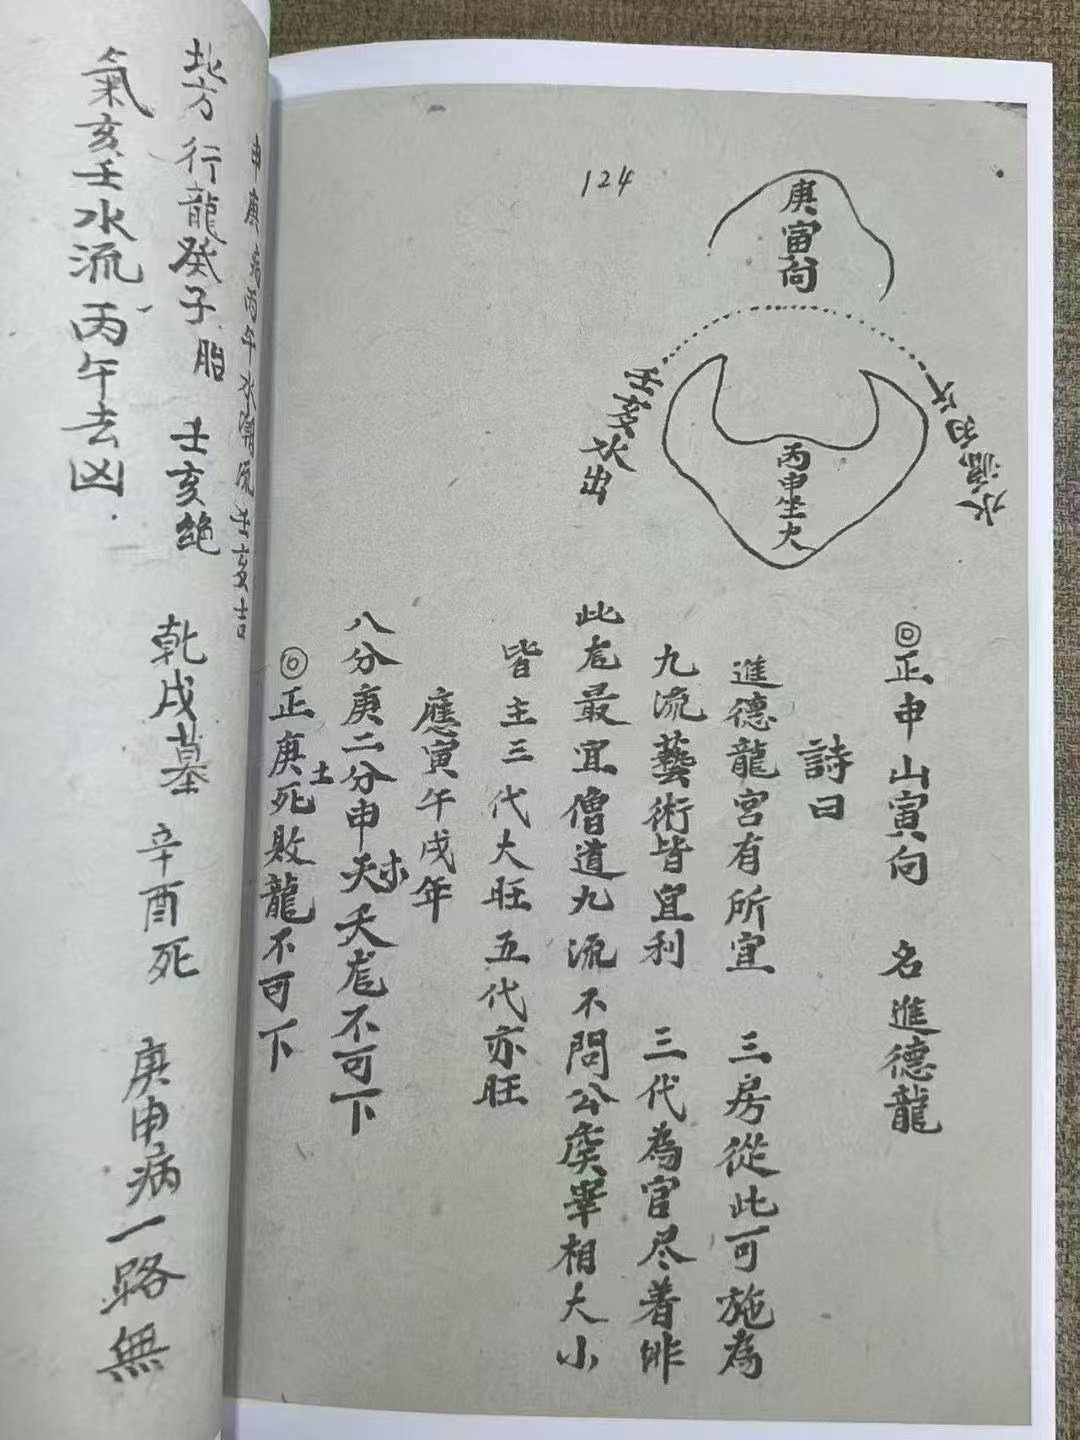 124
庚寅向
壬亥水出
丙申坐穴
◎正申山寅向　名進德龍
詩曰
進德龍宮有所宜　三房從此可施為
九流藝術皆宜利　三代為官尽着緋
此龙最宜僧道九流不問公侯宰相大小
皆主三代大旺五代亦旺
應寅午戌年
八分庚二分申天木夭龙不可下
◎正庚死土敗龍不可下
申庚病丙午水潮流壬亥吉
北方行龍癸子胎　壬亥绝　乾戌墓　辛酉死　庚申病一路無
氣亥壬水流丙午去凶